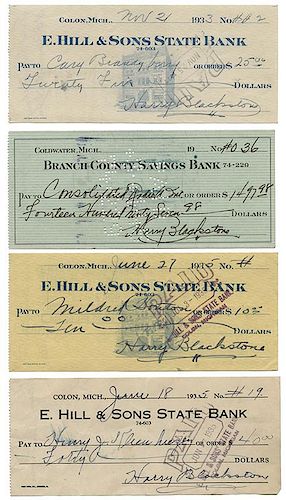 COLON, MICH. Nov 21 1933 No. ##2
E. HILL & SONS STATE BANK
74-603
PAY TO Cary OR ORDER $25.00
Twenty Five DOLLARS
Harry Blackstone
COLDWATER, MICH. 19 No. #036
BRANCH COUNTY SAVINGS BANK 74-220
PAY TO Consolidated OR ORDER $1497.98
Fourteen Hundred Ninty Seven 98 DOLLARS
Harry Blackstone
COLON, MICH. June 27 1935 No. #
E. HILL & SONS STATE BANK
74-603
PAY TO Mildred OR ORDER $10.00
Ten DOLLARS
Harry Blackstone
PAID
E. HILL & SONS STATE BANK
COLON, MICH. June 18 1935 No. #19
E. HILL & SONS STATE BANK
74-603
PAY TO Henry J OR ORDER $40.00
Forty DOLLARS
Harry Blackstone
PAID